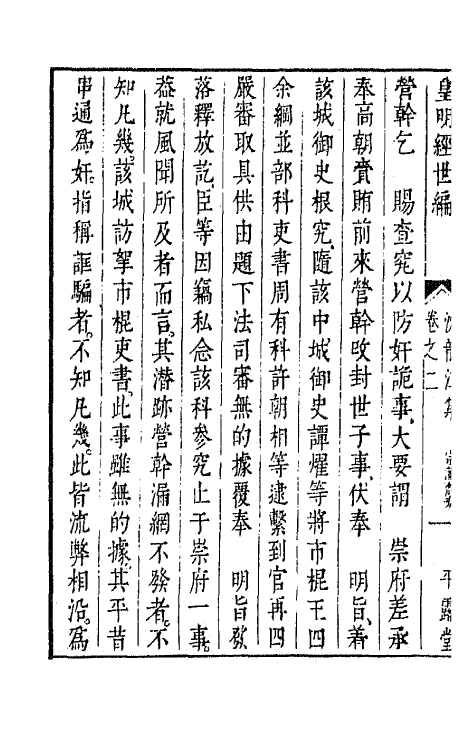 皇明經世編
卷之二
一
平露堂
營幹乞　賜查究以防奸詭事大要謂　崇府差承
奉高朝賚賄前來營幹改封世子事伏奉　明旨着
該城御史根究隨該中城御史譚燿等將市棍王四
余綱並部科吏書周有科許朝相等逮繫到官再四
嚴審取具供由題下法司審無的據覆奉　明旨發
落釋放訖臣等因竊私念該科參究止于崇府一事
葢就風聞所及者而言其潛跡營幹漏網不發者不
知凡幾該城訪拏市棍吏書此事雖無的據其平昔
串通爲奸指稱誆騙者不知凡幾此皆流弊相沿爲